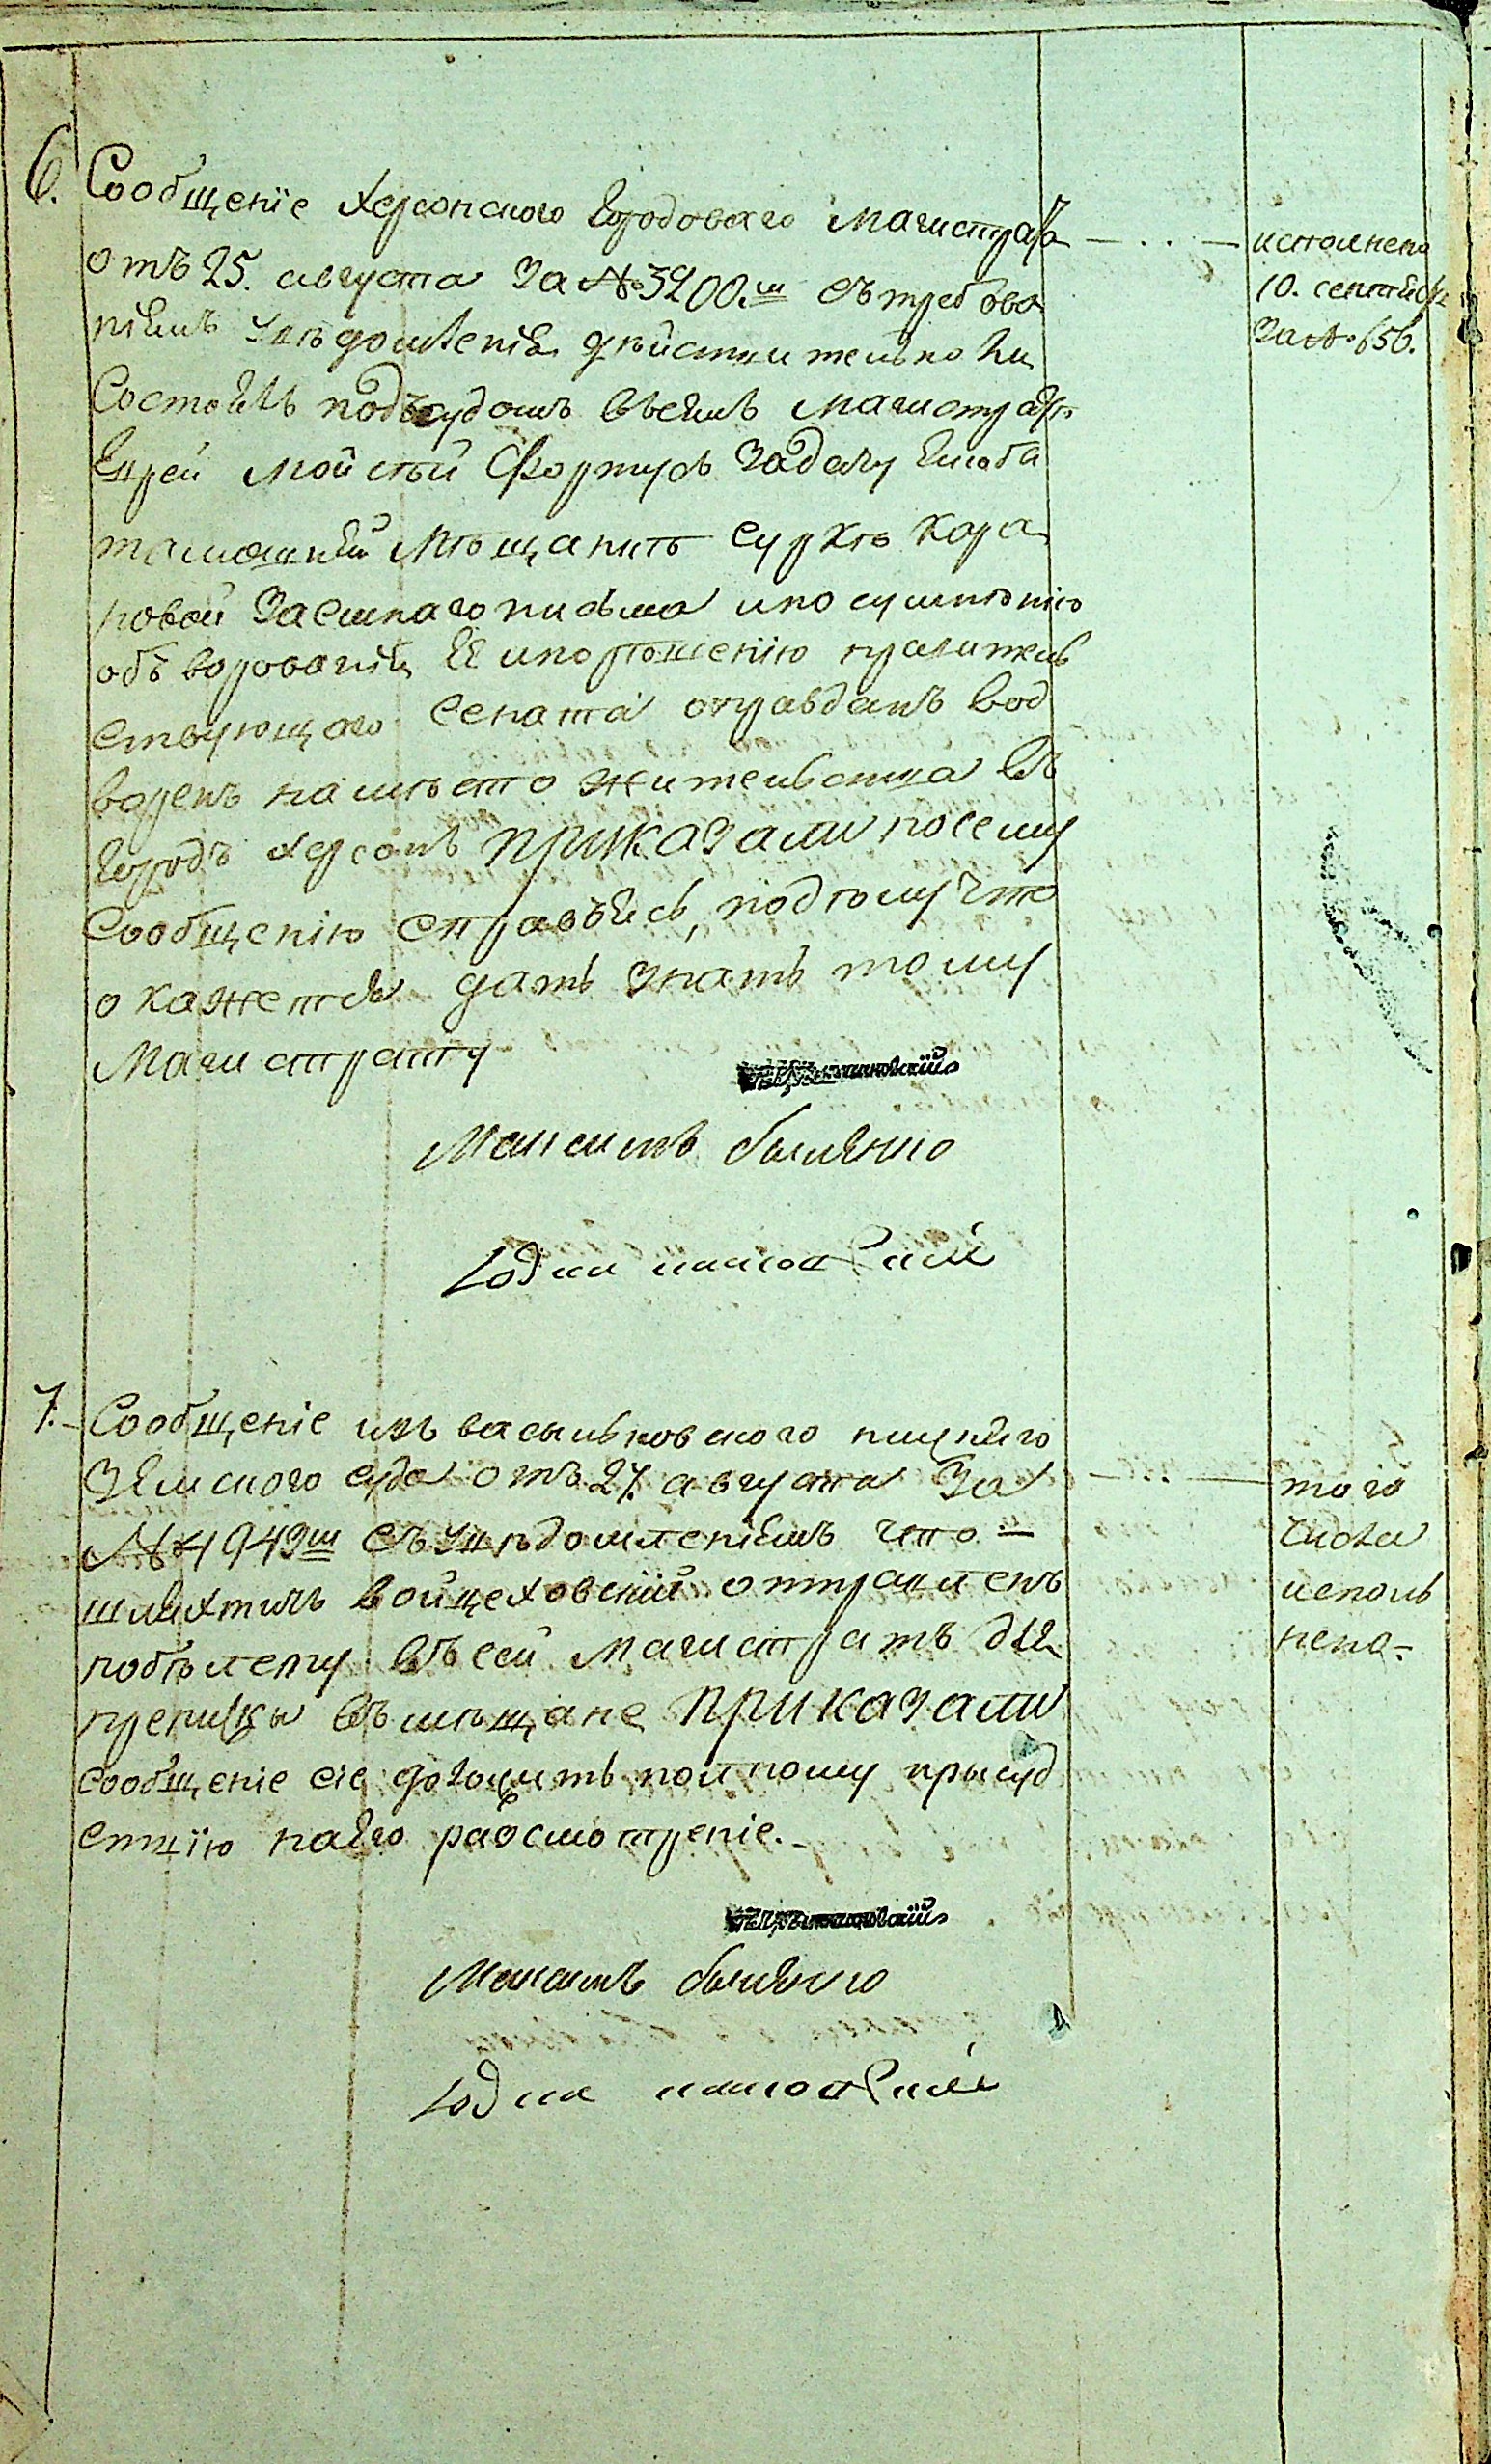 6. Сообщенїе Херсонского Городоваго Магистрата
отъ 25. августа За № 3200.м съ требова
нїемъ Увѣдомленїя дѣйствительно ли
Состоялъ подъ судомъ въ семъ Магистратѣ
Еврей Мойсей Фортусъ За дачу Имъ
тамошней Мѣщанкѣ Суркѣ
ровой Заемнаго письма и по сумнѣнїю
обворованїи Ее и по рѣшенїю правитель
ствующаго Сената оправданъ вод
воренъ на мѣсто жительства въ
Городъ Херсонъ ПРИКАЗАЛИ по сему
Сообщенїю справясь, подтому что
окажется дать знать тому
Магистрату
Максимъ
исполнено
10. сентября
За № 656.
7. Сообщенїе изъ васильковского нижняго
Земского суда отъ 27. августа За
№ 4943м съ Увѣдомленїемъ что
шляхтичъ войцеховский отправленъ
по билету въ сей Магистратъ для
приписки въ мѣщане ПРИКАЗАЛИ
Сообщенїе сїе доложить полному прысуд
ствїю на Его разсмотренїе.
Максимъ
того
числа
исполь
нено.